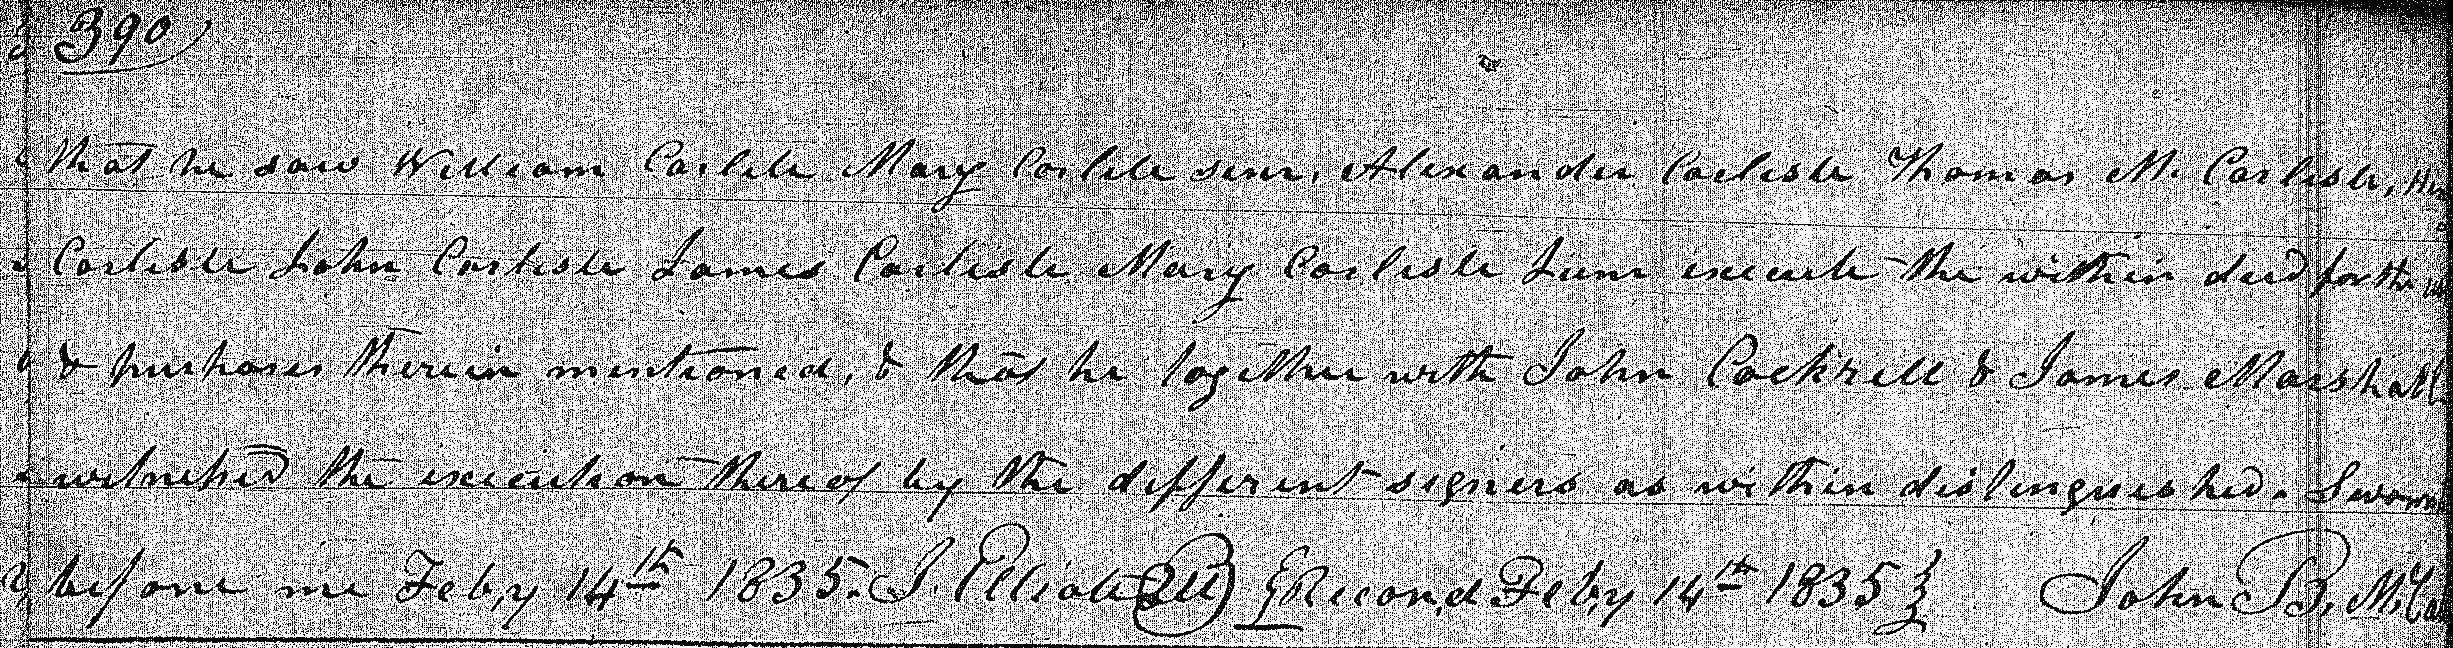 390
that he saw William Carlile Mary Carlile senr, Alexander Carlisle Thomas M. Carlisle,
Carlisle John Carlisle James Carlisle Mary Carlisle Junr execute the within deed for the
& purposes therein mentioned, & that he together with John Cockrell & James Marshall
witnessed the execution thereof by the different signers as within distinguished. Sworn
before me Feb,y 14th 1835. J. Elliott Record,d Feb,y 14th 1835 John B. McCa